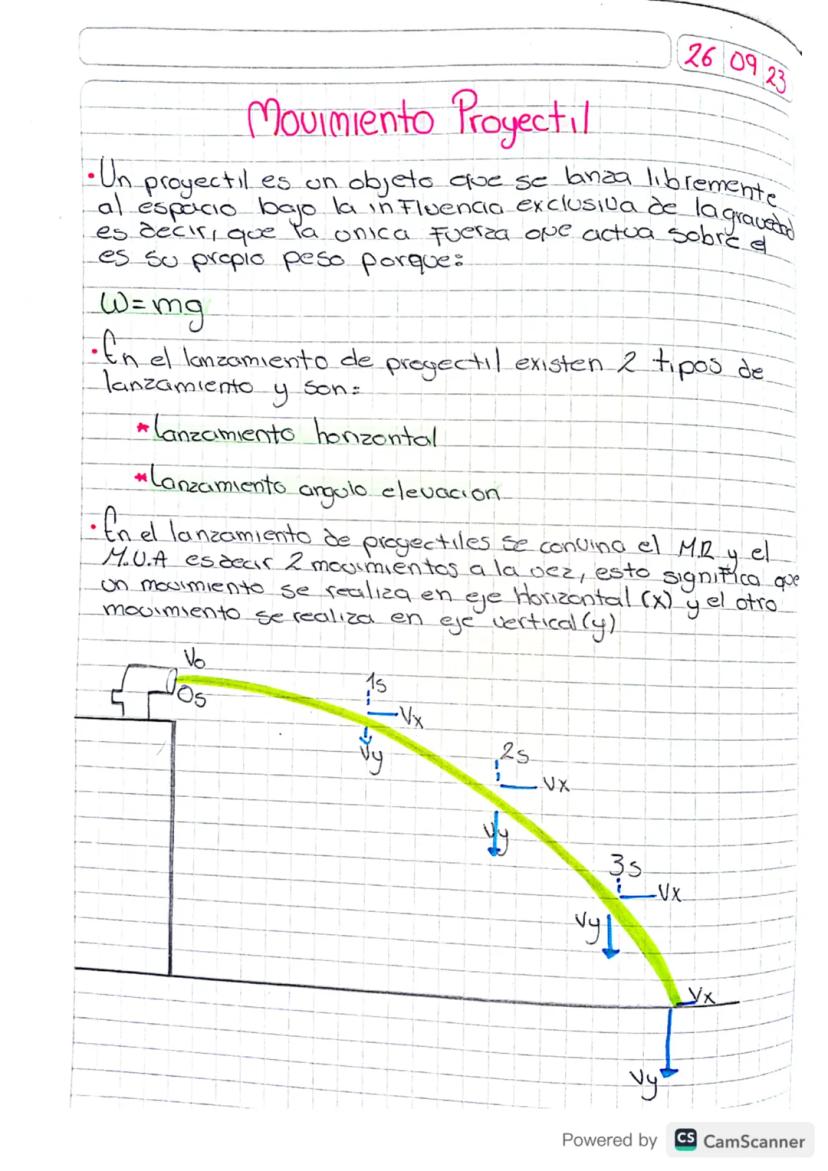 26 09 23
Movimiento Proyectil
• Un proyectil es un objeto que se lanza libremente
al espacio bajo la influencia exclusiva de la gravedad
es decir, que la unica fuerza que actua sobre el
es su propio peso porque:
W=mg
• En el lanzamiento de proyectil existen 2 tipos de
lanzamiento y son:
* lanzamiento horizontal
* Lanzamiento angulo elevacion
• En el lanzamiento de proyectiles se convina el M.R y el
M.U.A es decir 2 movimientos a la vez, esto significa que
un movimiento se realiza en eje Horizontal (x) y el otro
movimiento se realiza en eje vertical (y)
Vo
0s
1s
Vx
Vy
2s
Vx
Vy
3s
Vx
Vy
Vx
Vy
Powered by CS CamScanner